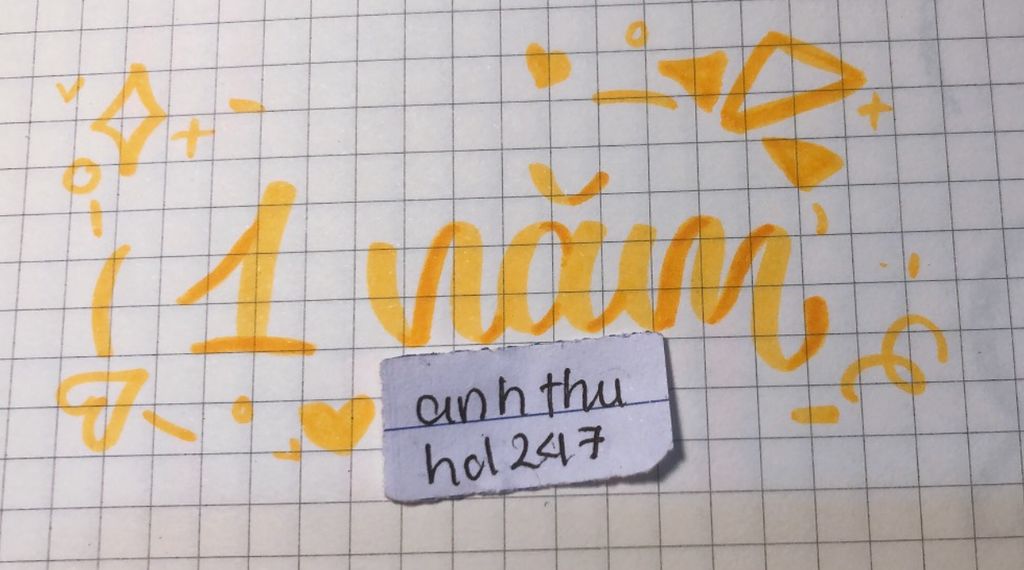 1 năm
anh thu
hd247